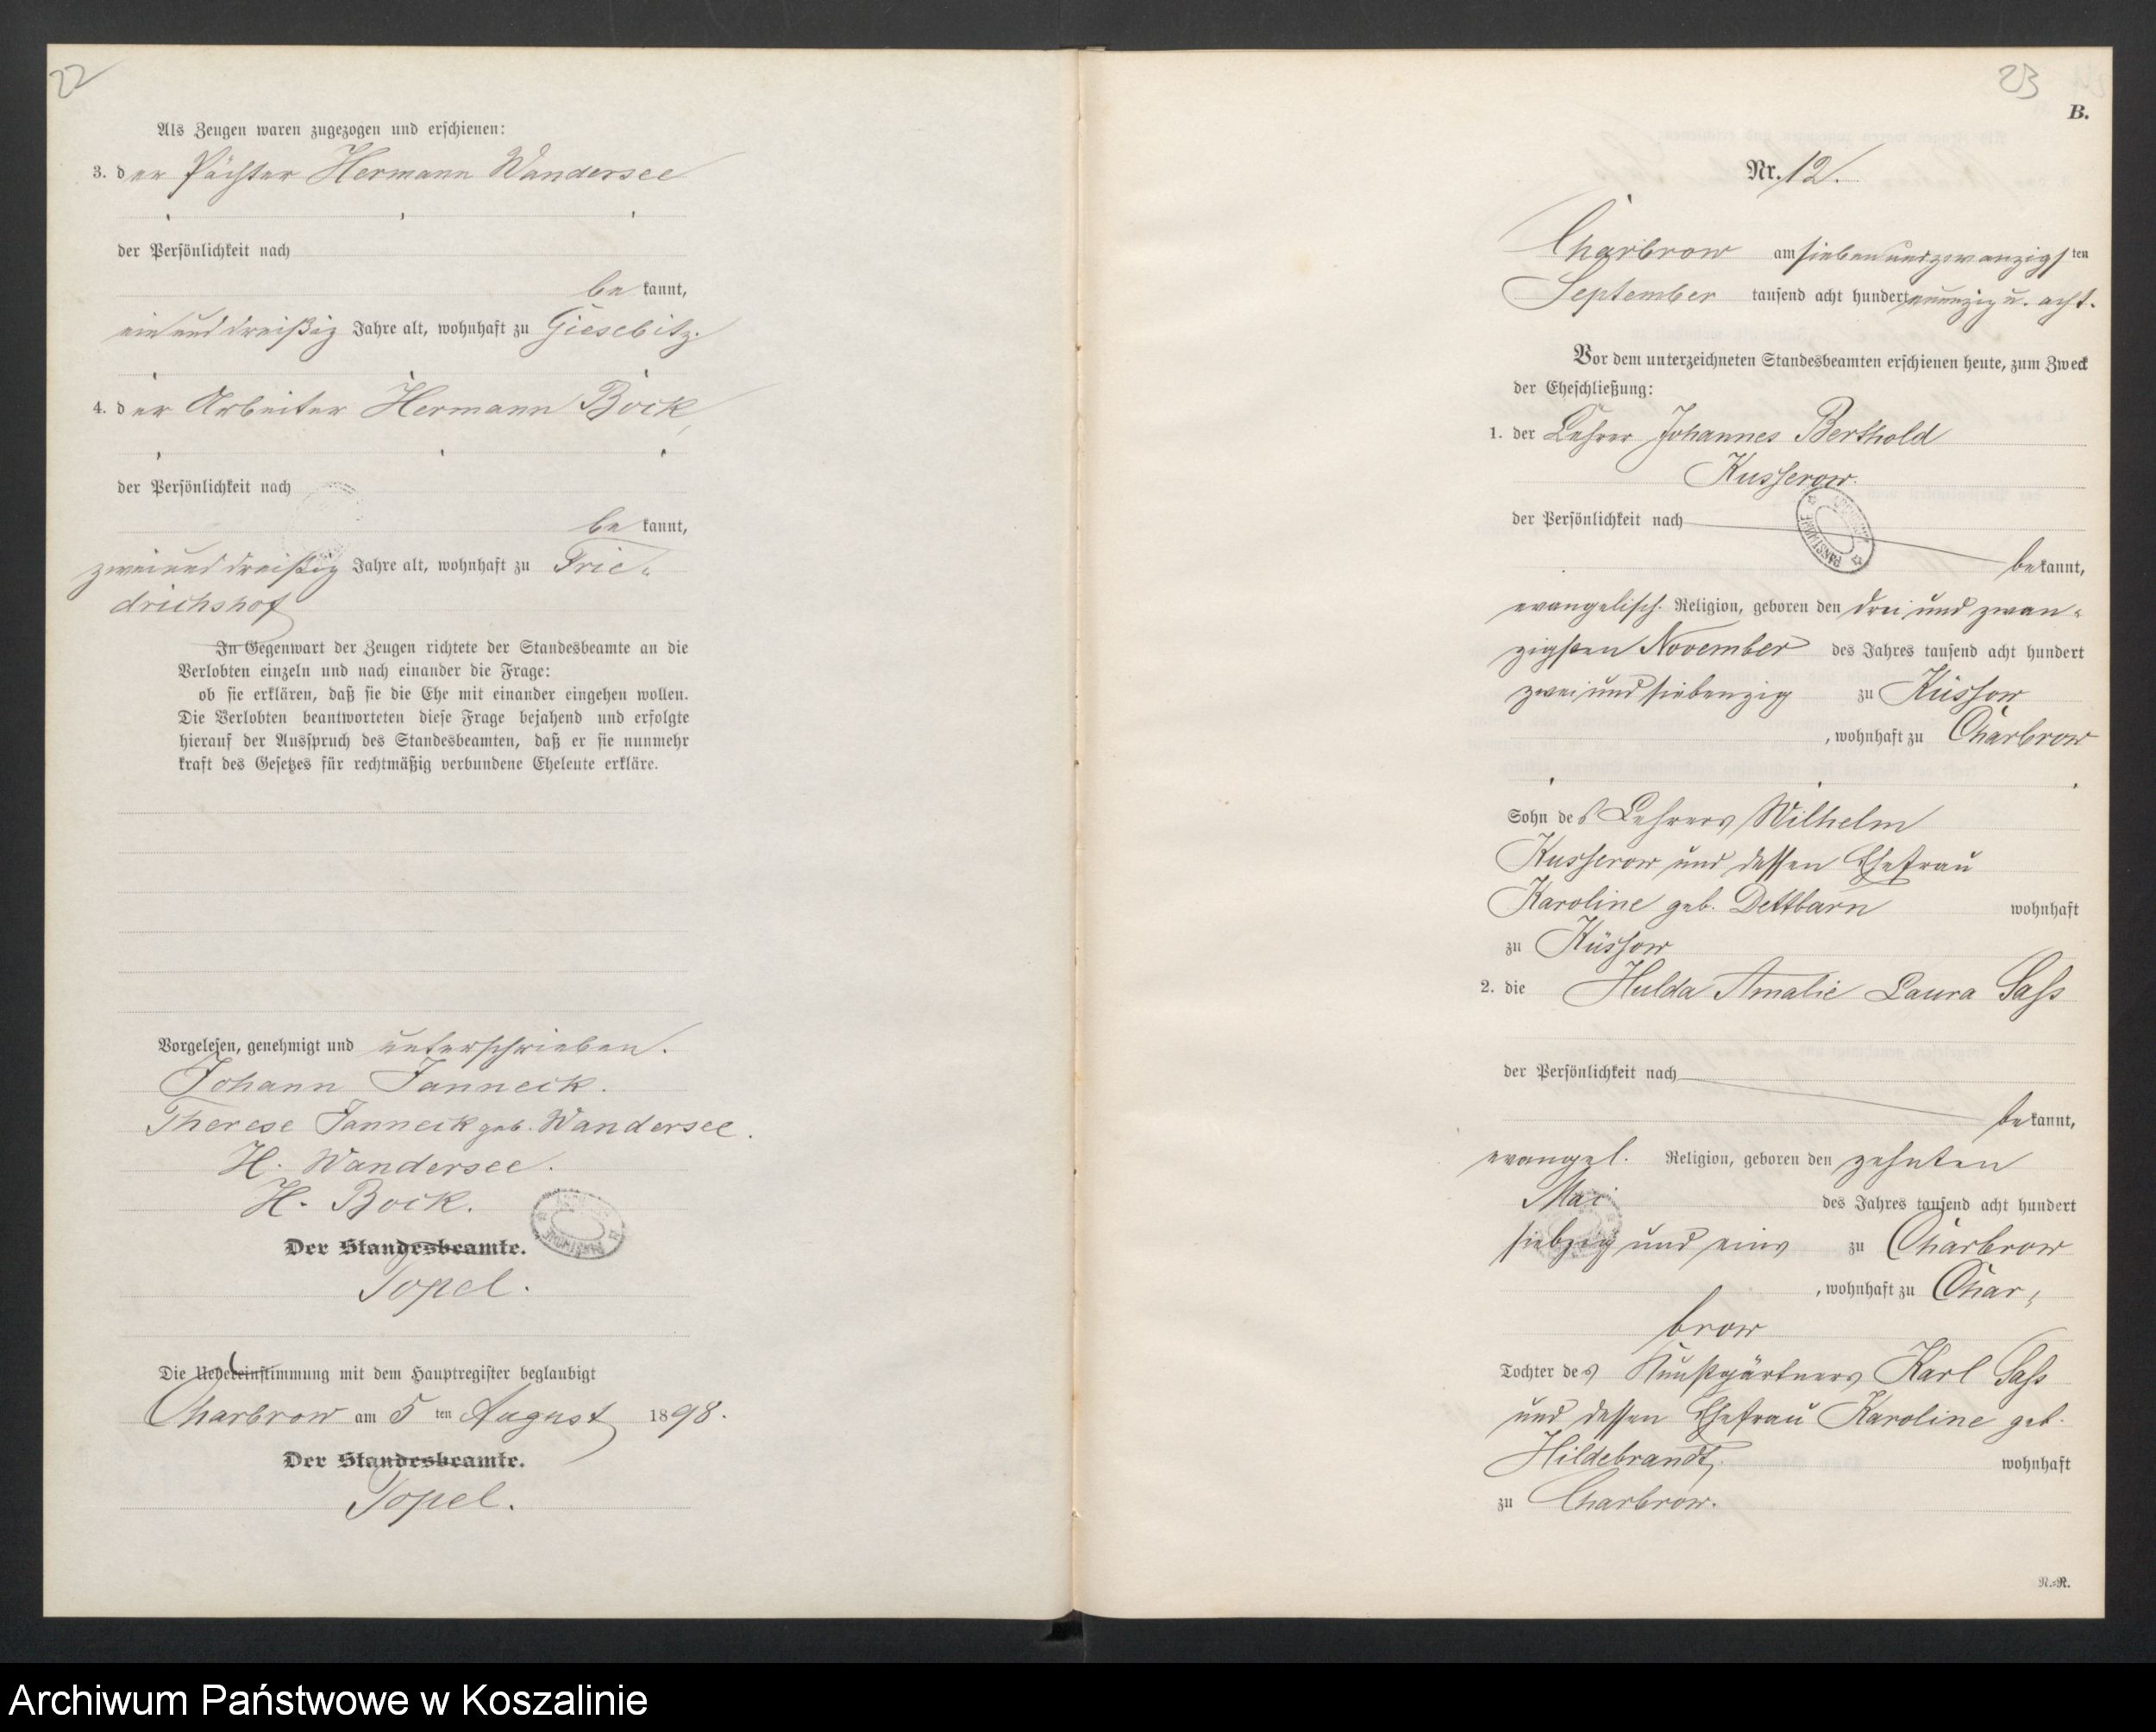 22
Als Zeugen waren zugezogen und erschienen:
3. der Pächter Hermann Wandersee
der Persönlichkeit nach
bekannt,
einunddreißig Jahre alt, wohnhaft zu Giesebitz.
4. der Arbeiter Hermann Bock,
der Persönlichkeit nach
bekannt,
zweiunddreißig Jahre alt, wohnhaft zu Frie-
drichshof
In Gegenwart der Zeugen richtete der Standesbeamte an die
Verlobten einzeln und nach einander die Frage:
ob sie erklären, daß sie die Ehe mit einander eingehen wollen.
Die Verlobten beantworteten diese Frage bejahend und erfolgte
hierauf der Ausspruch des Standesbeamten, daß er sie nunmehr
kraft des Gesetzes für rechtmäßig verbundene Eheleute erkläre.
Vorgelesen, genehmigt und unterschrieben.
Johann Janneck.
Therese Janneck geb. Wandersee.
H. Wandersee.
H. Bock.
Der Standesbeamte.
Topel.
Die Uebereinstimmung mit dem Hauptregister beglaubigt
Charbrow am 5 ten August 1898.
Der Standesbeamte.
Topel.
23
B.
Nr. 12.
Charbrow am siebenundzwanzigsten
September tausend acht hundert neunzig u. acht.
Vor dem unterzeichneten Standesbeamten erschienen heute, zum Zweck
der Eheschließung:
1. der Lehrer Johannes Berthold
Kusserow
der Persönlichkeit nach
bekannt,
evangelisch. Religion, geboren den drei und zwan-
zigsten November des Jahres tausend acht hundert
zwei und siebenzig zu Küssow
, wohnhaft zu Charbrow
Sohn des Lehrers Wilhelm
Kusserow und dessen Ehefrau
Karoline geb. Dettbarn wohnhaft
zu Küssow
2. die Hulda Amalie Laura Sass
der Persönlichkeit nach
bekannt,
evangel. Religion, geboren den zehnten
Mai des Jahres tausend acht hundert
siebzig und eins zu Charbrow
, wohnhaft zu Char-
brow
Tochter des Kunstgärtners Karl Sass
und dessen Ehefrau Karoline geb.
Hildebrandt, wohnhaft
zu Charbrow.
N.=R.
Archiwum Państwowe w Koszalinie